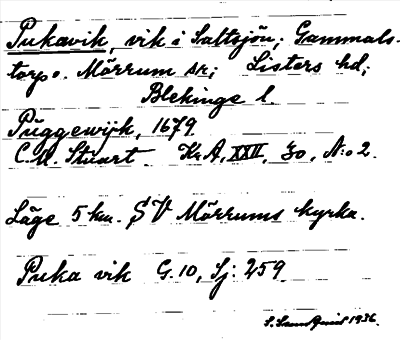 Pukavik, vik i Saltsjön; Gammals-
torp o. Mörrum sn; Listers hd;
Blekinge l.
Püggewijk, 1679.
C.M. Stuart. KrA, XXII, 30, N:o 2.
Läge 5 km. SV Mörrums kyrka.
Puka vik G.10, Sj: 259.
S. 1936.